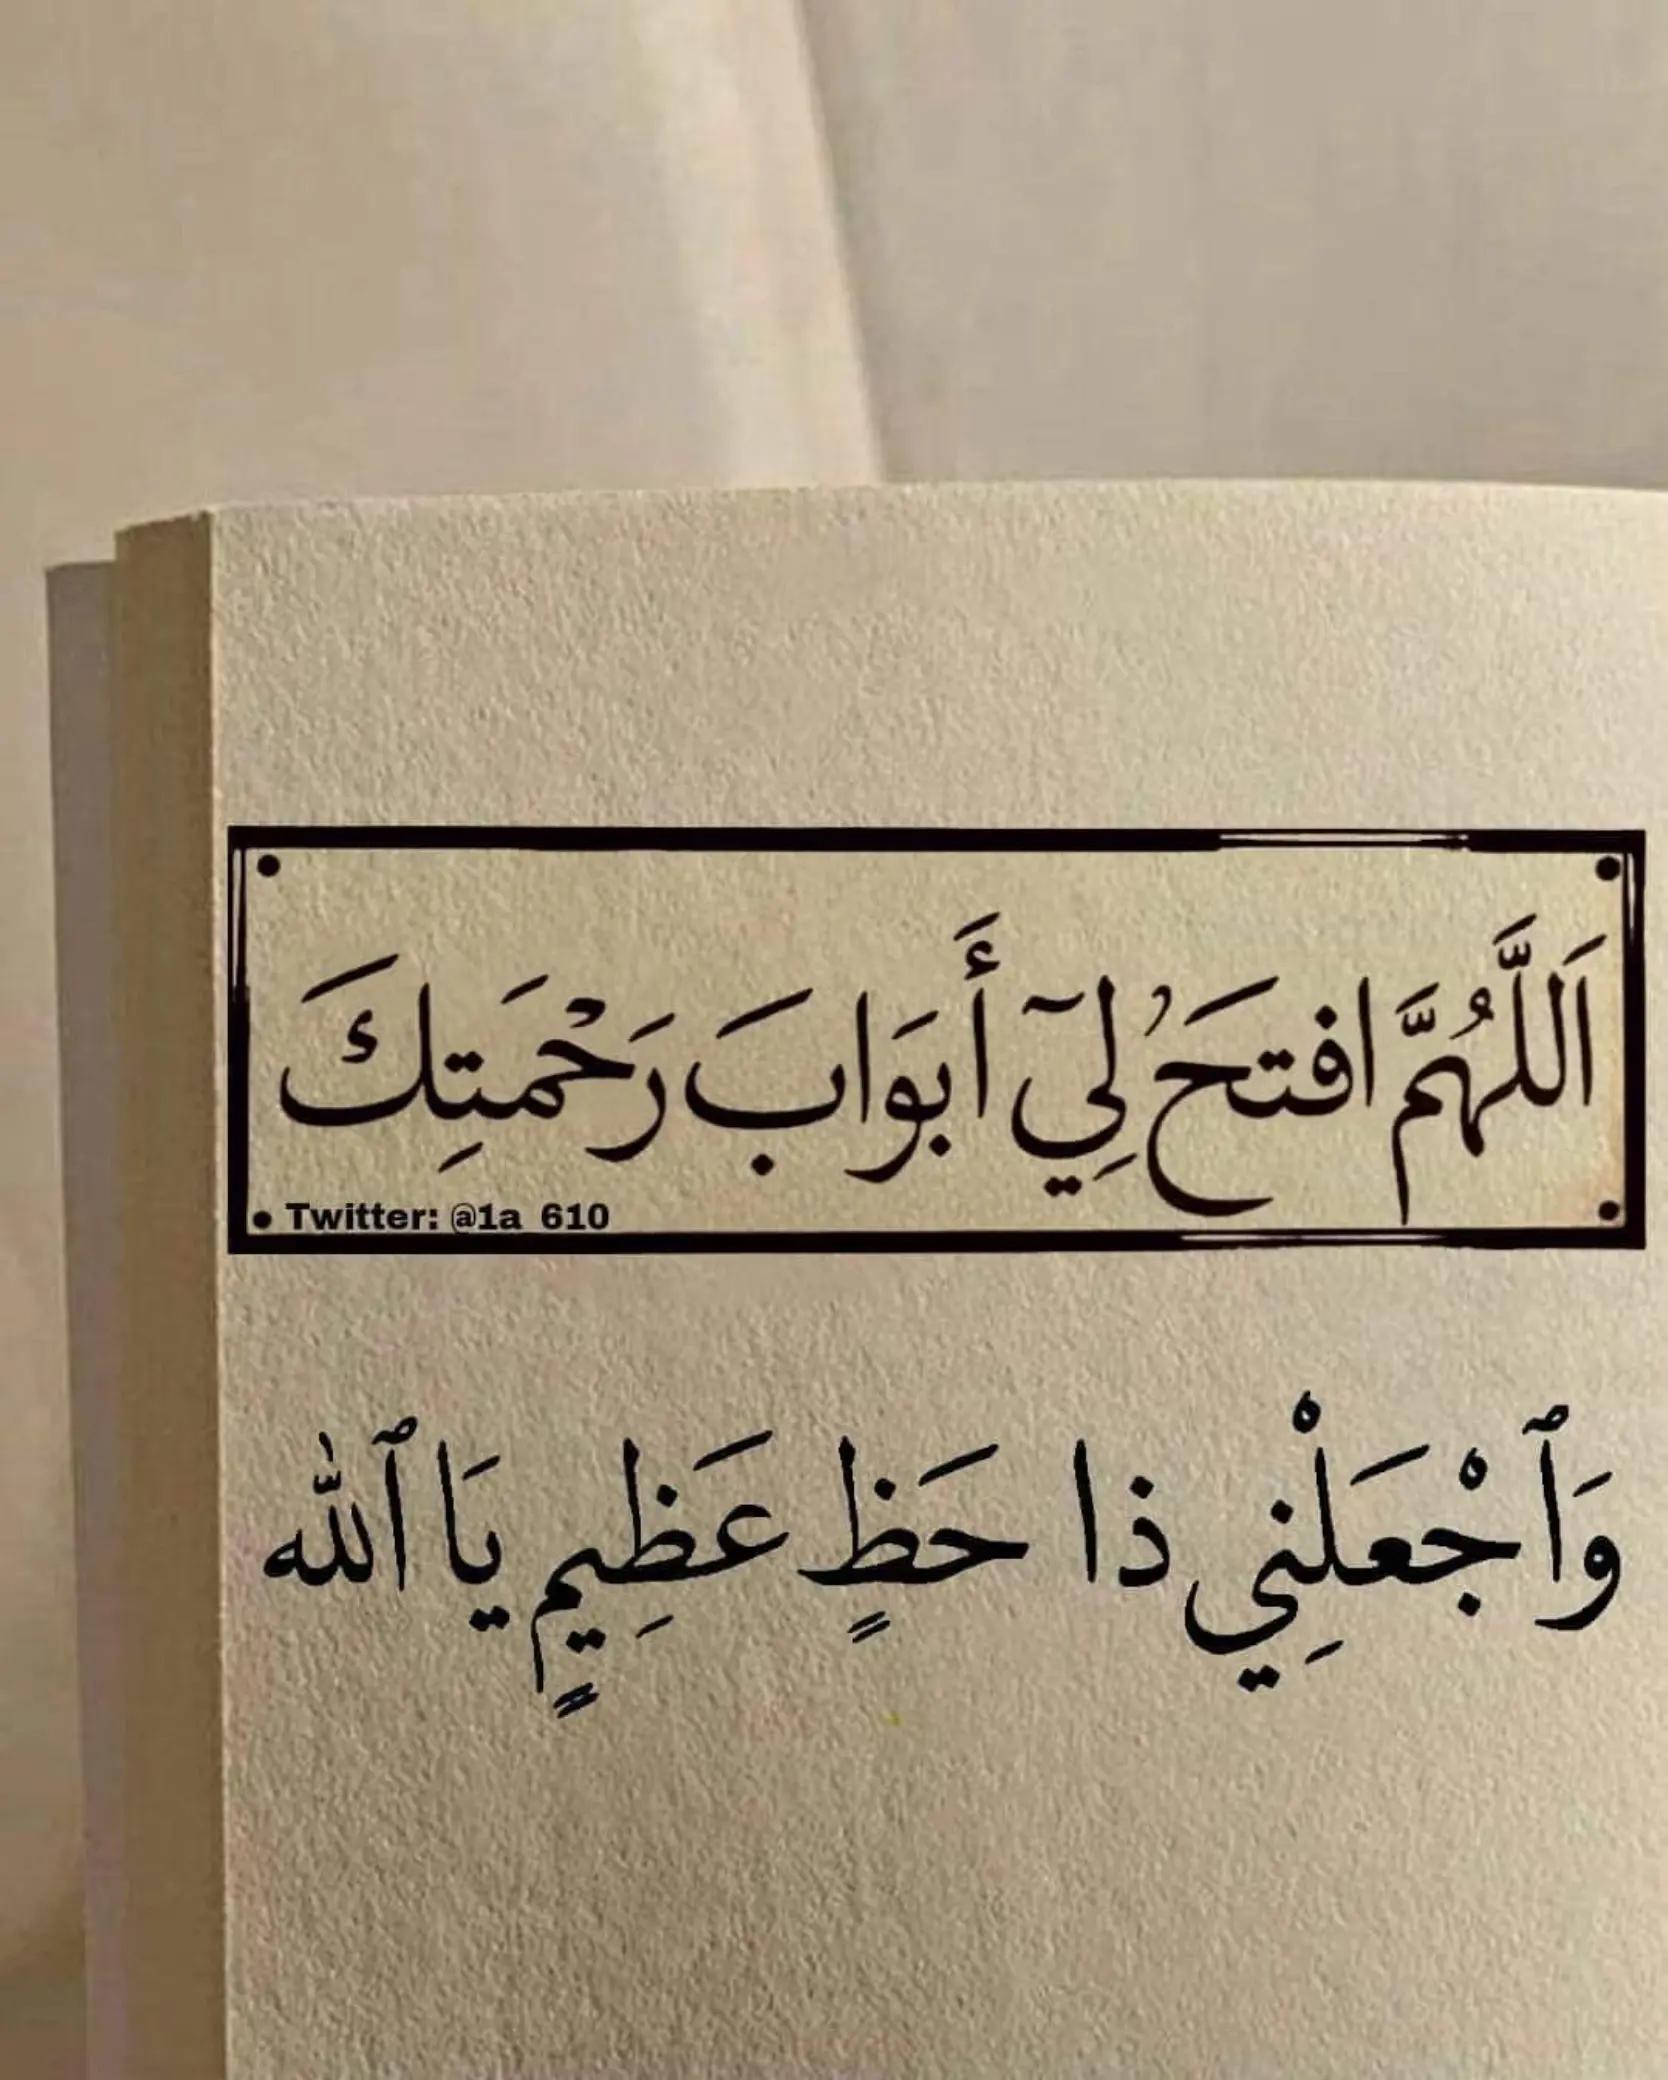 اَللَّهُمَّ افتَحُ لِيٓ أَبوَابَ رَحْمَتِكَ
Twitter: @1a_610
وَٱجْعَلْنِي ذا حَظٍ عَظِيمٍ يَا ٱللّٰه